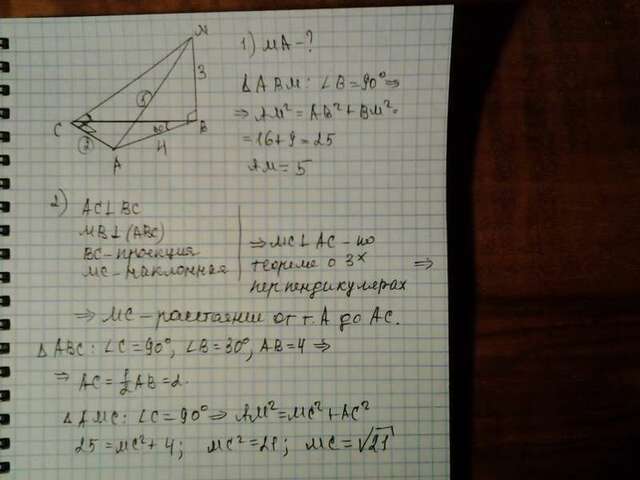 M
5
3
C
30°
B
2
4
A
1) MA - ?
△ABM: ∠B = 90° ⇒
⇒ AM² = AB² + BM² =
= 16 + 9 = 25
AM = 5
2) AC ⊥ BC
MB ⊥ (ABC)
BC - проекция
MC - наклонная
⇒ MC ⊥ AC - по
теореме о 3х
перпендикулярах ⇒
⇒ MC - расстояние от т. A до AC.
△ABC: ∠C = 90°, ∠B = 30°, AB = 4 ⇒
⇒ AC = 1/2 AB = 2.
△AMC: ∠C = 90° ⇒ AM² = MC² + AC²
25 = MC² + 4; MC² = 21; MC = √21